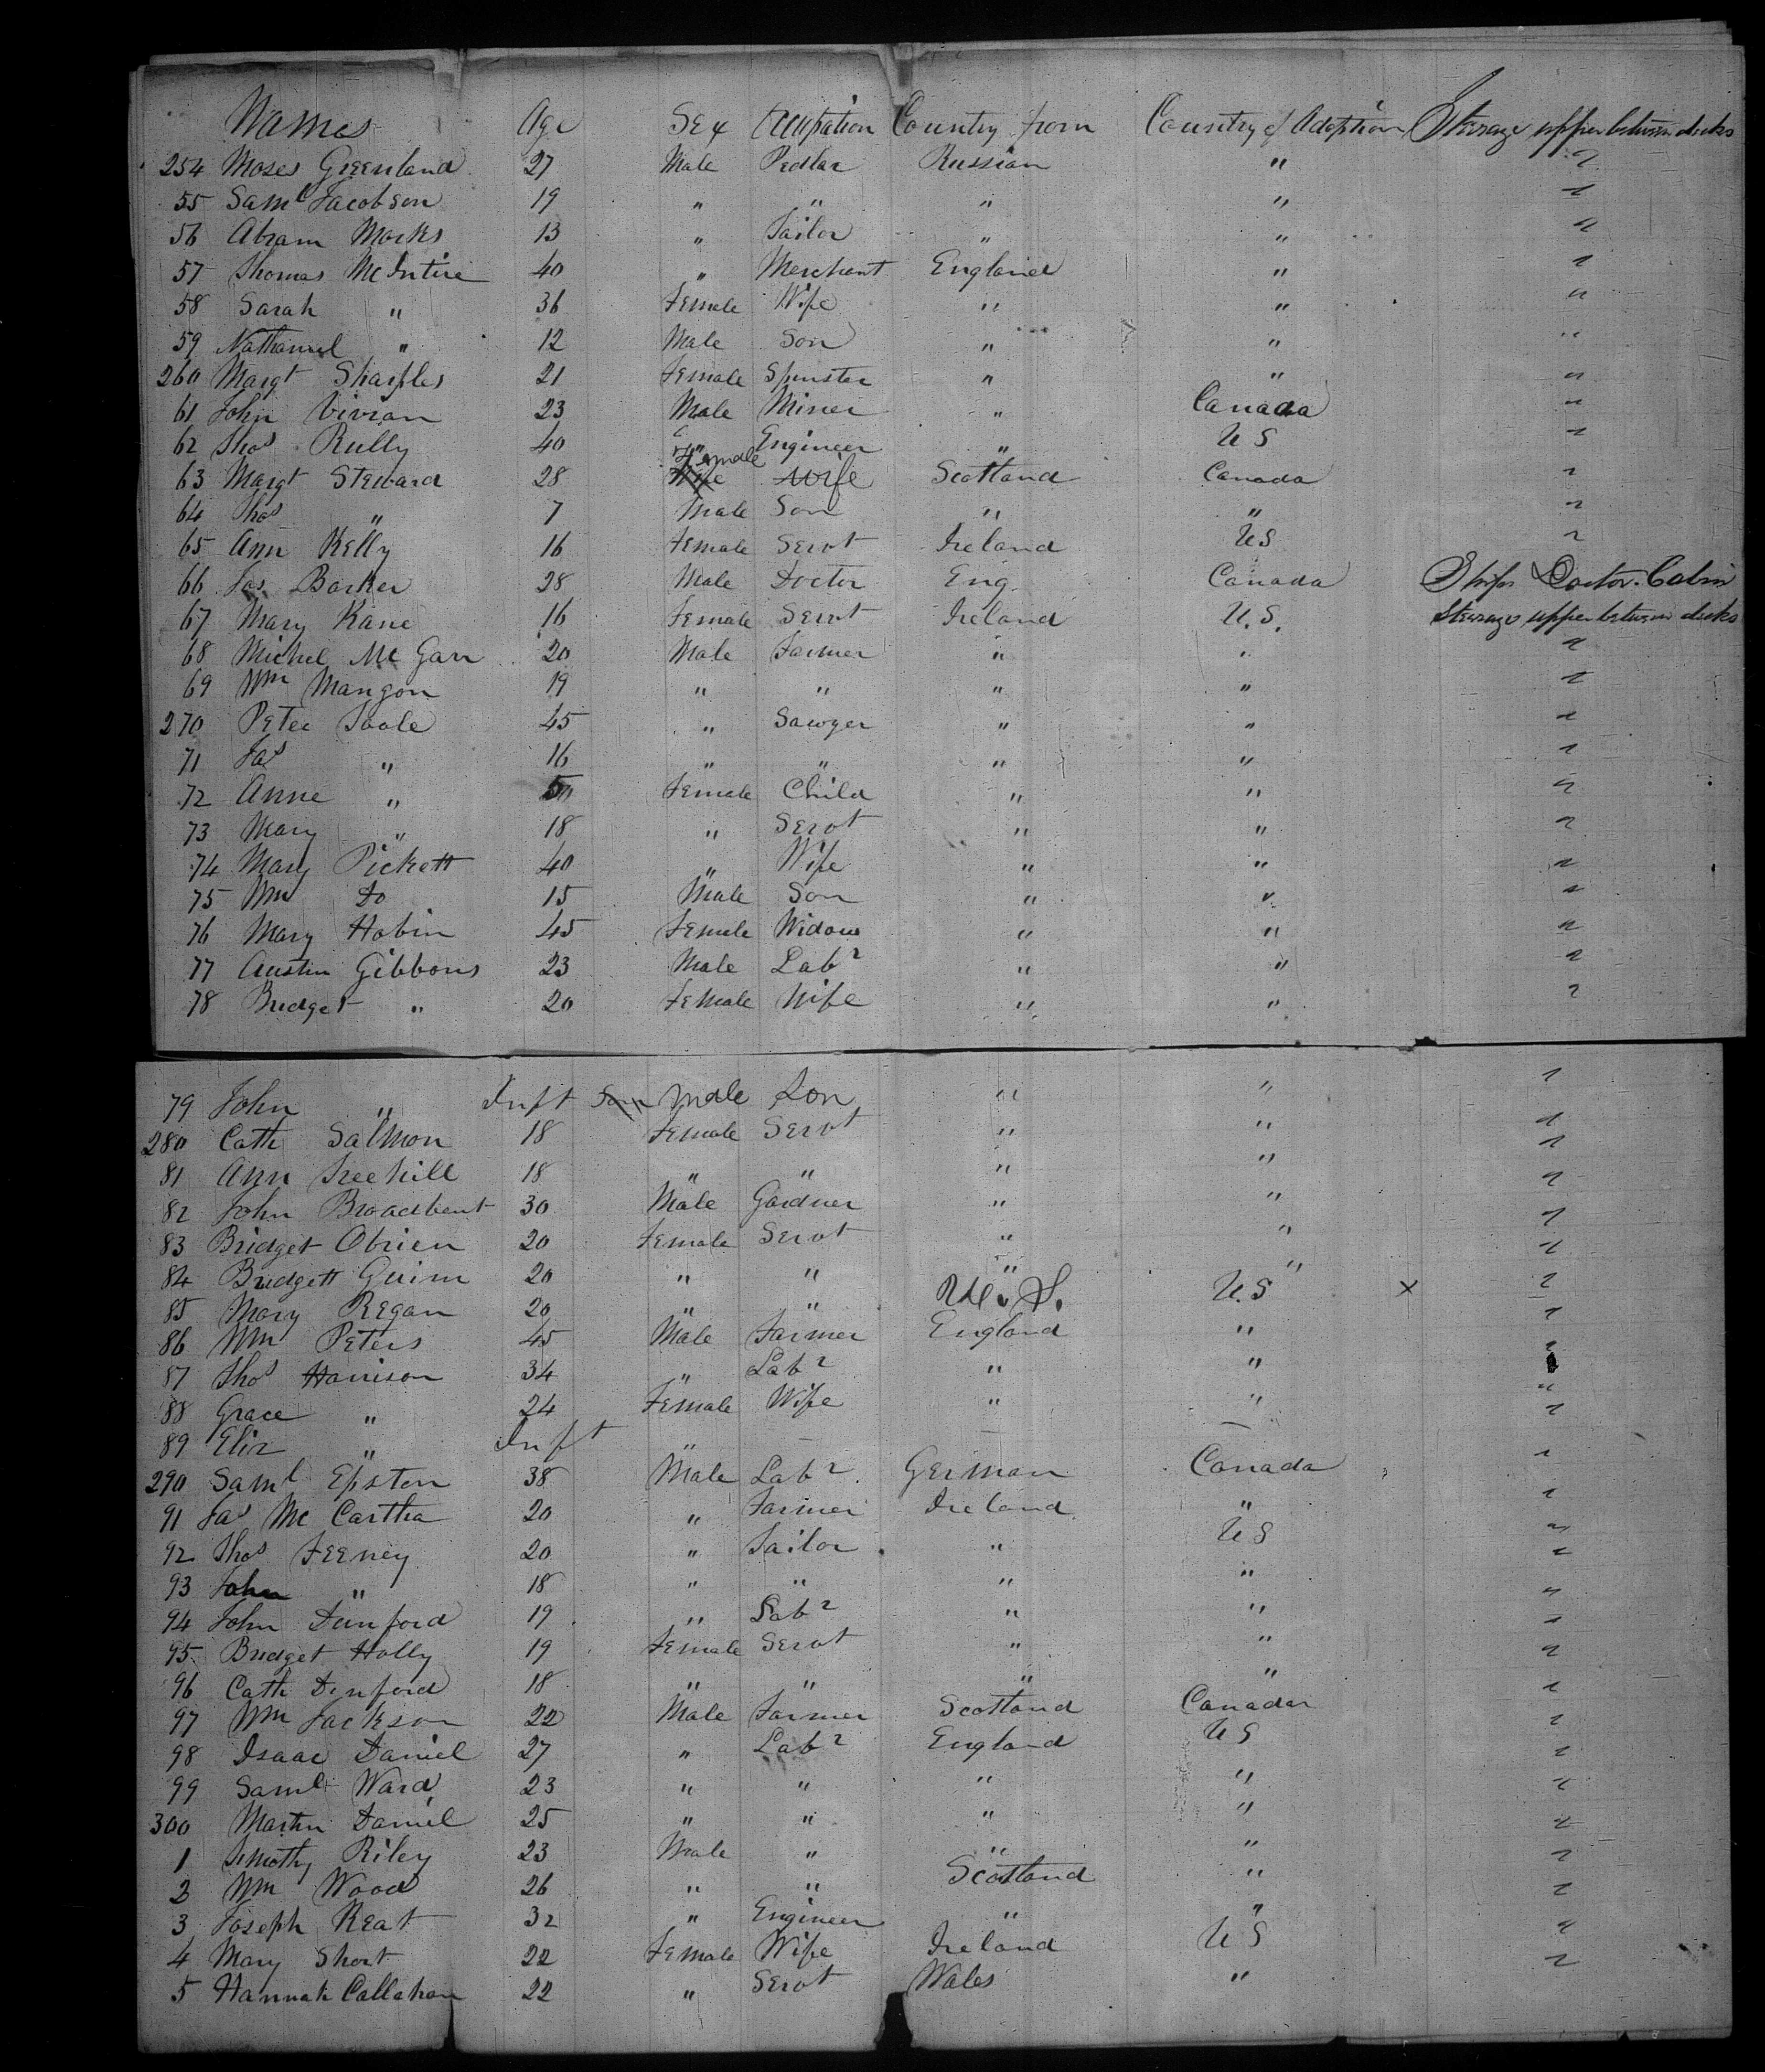 Names Age Sex Occupation Country from Country of Adoption Steerage upper between decks
254 Moses Greenland 27 Male Pedlar Russian " "
55 Saml Jacobson 19 " " " " "
56 Abram Marks 13 " Tailor " " "
57 Thomas McIntire 40 " Merchant England " "
58 Sarah " 36 Female Wife " " "
59 Nathaniel " 12 Male Son " " "
260 Margt Sharples 21 Female Spinster " " "
61 John Vivian 23 Male Miner " Canada "
62 Thos Rully 40 " Engineer " US "
63 Margt Steward 28 Female Wife Scotland Canada "
64 Thos " 7 Male Son " " "
65 Ann Kelly 16 Female Servt Ireland US "
66 Jas Barker 28 Male Doctor Eng. Canada Ships Doctor. Cabin
67 Mary Kane 16 Female Servt Ireland U.S. Steerage upper between decks
68 Michel Mc Garr 20 Male Farmer " " "
69 Wm Mangon 19 " " " " "
270 Peter Toole 45 " Sawyer " " "
71 Jas " 16 " " " " "
72 Anne " Female Child " " "
73 Mary " 18 " Servt " " "
74 Mary Pickett 40 " Wife " " "
75 Wm Do 15 Male Son " " "
76 Mary Hobin 45 Female Widow " " "
77 Austin Gibbons 23 Male Labr " " "
78 Bridget " 20 Female Wife " " "
79 John " Inft Son Male Son " " "
280 Cath Salmon 18 Female Servt " " "
81 Ann Treehill 18 " " " " "
82 John Broadbent 30 Male Gardner " " "
83 Bridget Obrien 20 Female Servt " " "
84 Bridgett Guinn 20 " " " " "
85 Mary Regan 20 " " U.S. U.S × "
86 Wm Peters 45 Male Farmer England " "
87 Thos Harrison 34 " Labr " " "
88 Grace " 24 Female Wife " " "
89 Eliz " Inft " – – – "
290 Saml Epsten 38 Male Labr. German Canada "
91 Jas Mc Cartha 20 " Farmer Ireland " "
92 Thos Feeney 20 " Tailor " US "
93 John " 18 " " " " "
94 John Dunford 19 " Labr " " "
95 Bridget Holly 19 Female Servt " " "
96 Cath Dunford 18 " " " " "
97 Wm Jackson 22 Male Farmer Scotland Canada "
98 Isaac Daniel 27 " Labr England US "
99 Saml Ward 23 " " " " "
300 Martin Daniel 25 " " " " "
1 Timothy Riley 23 Male " " " "
2 Wm Wood 26 " " Scotland " "
3 Joseph Keat 32 " Engineer " " "
4 Mary Short 22 Female Wife Ireland US "
5 Hannah Callahan 22 " Servt Wales "